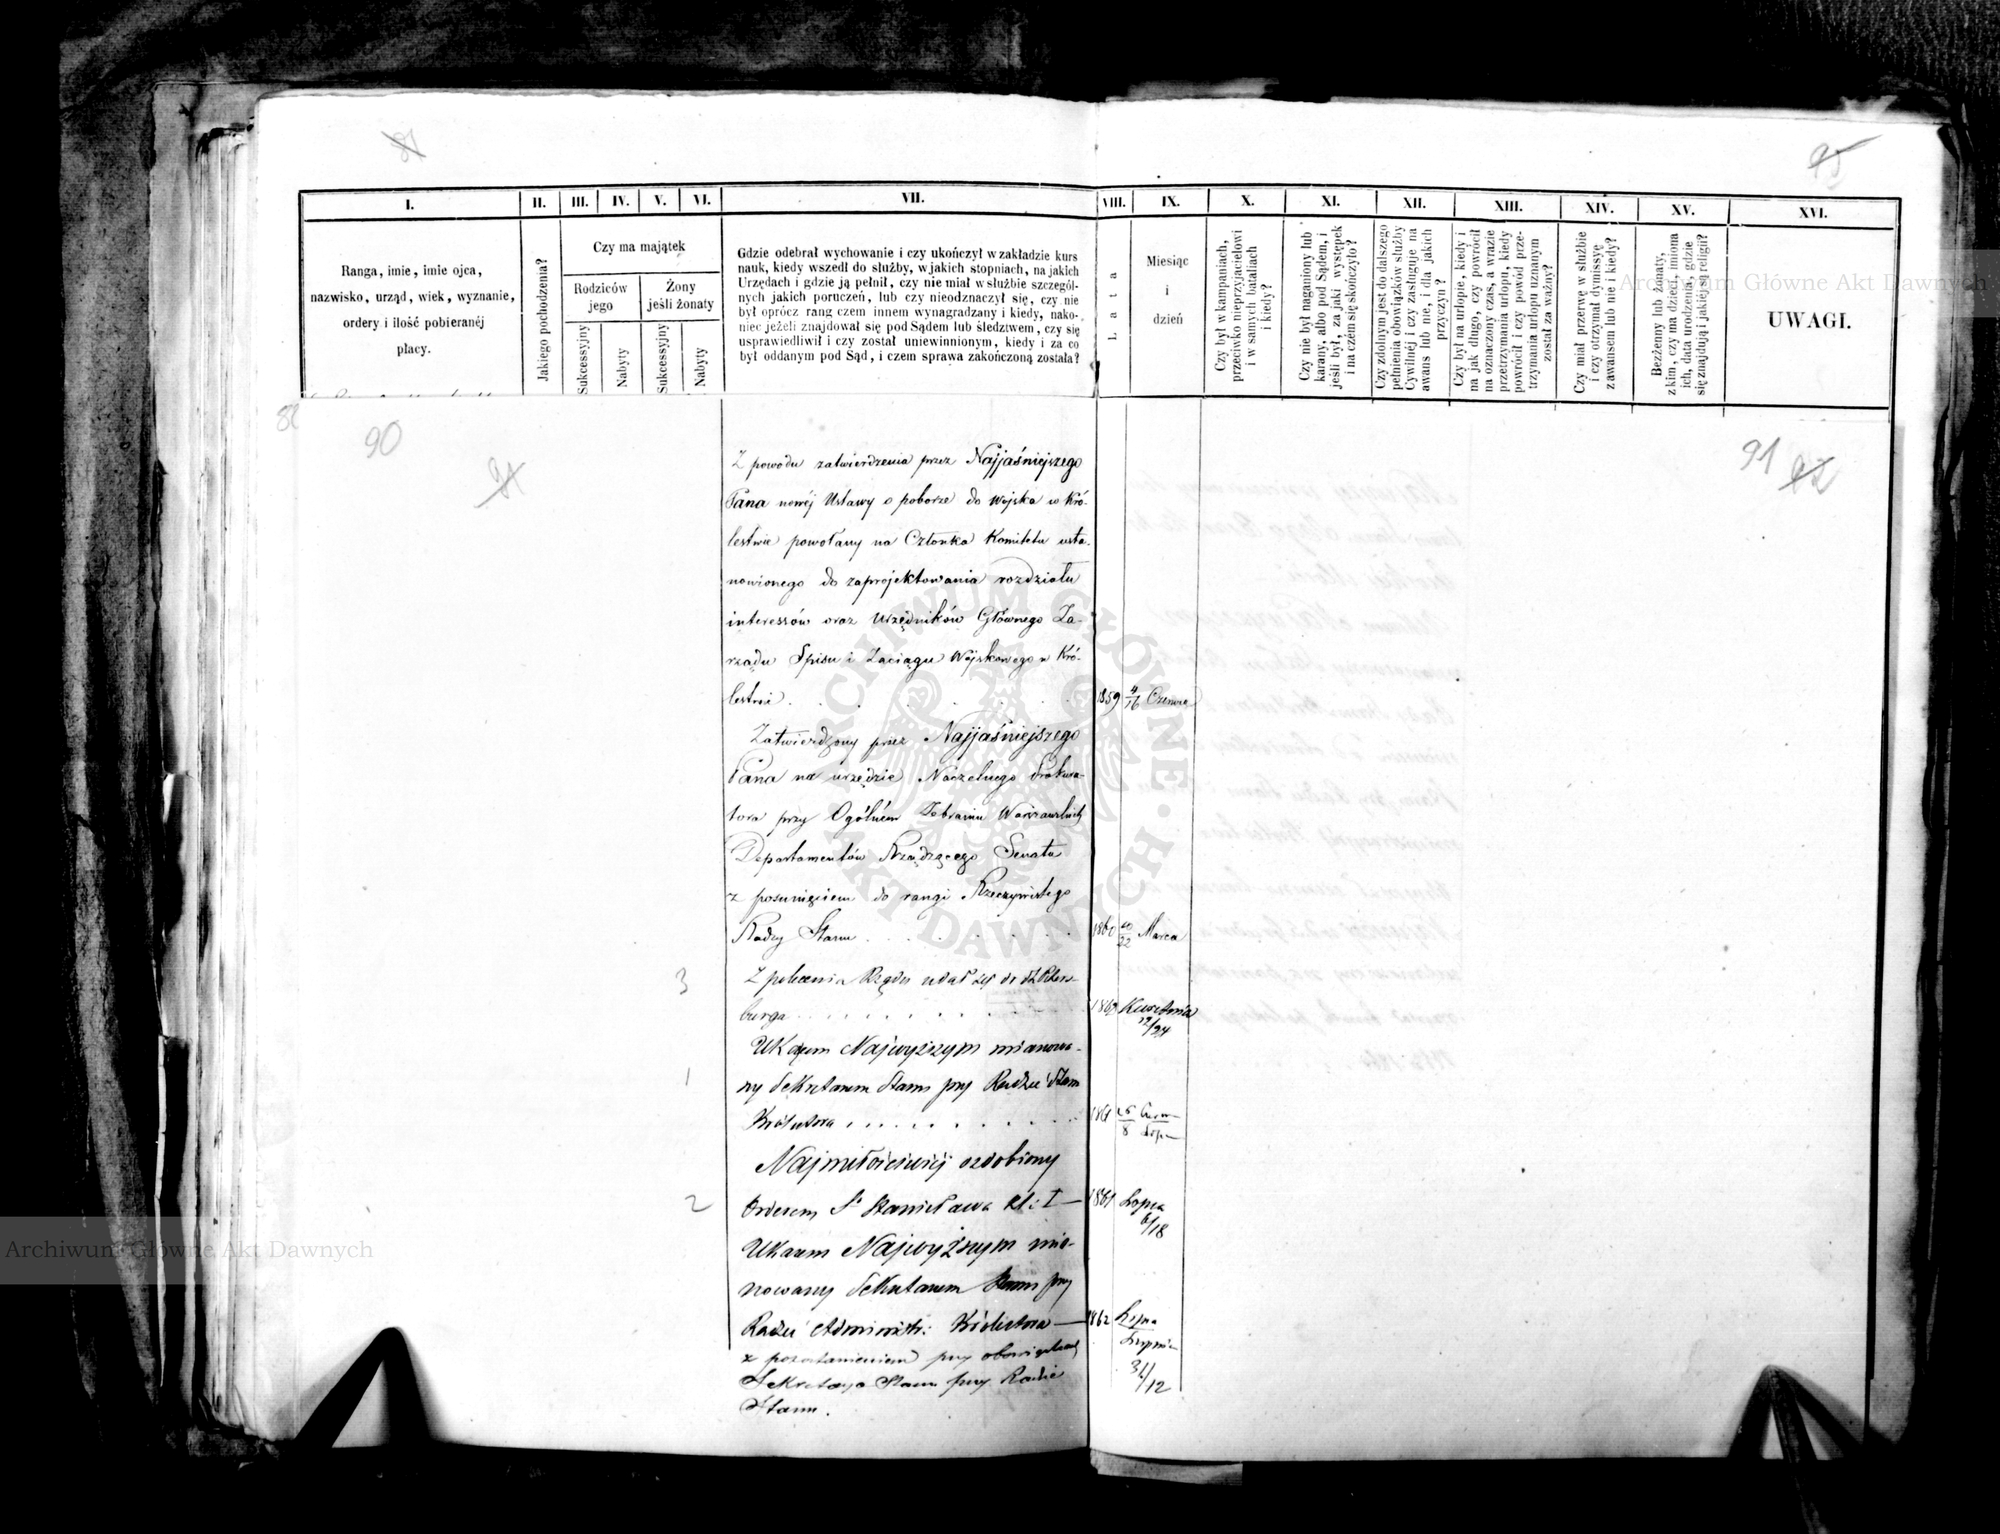 81
95
I.
II.
III.
IV.
V.
VI.
VII.
VIII.
IX.
X.
XI.
XII.
XIII.
XIV.
XV.
XVI.
Ranga, imie, imie ojca,
nazwisko, urząd, wiek, wyznanie,
ordery i ilość pobieranéj
płacy.
Jakiego pochodzenia?
Czy ma majątek
Rodziców
jego
Żony
jeśli żonaty
Sukcessyjny
Nabyty
Sukcessyjny
Nabyty
Gdzie odebrał wychowanie i czy ukończył w zakładzie kurs
nauk, kiedy wszedł do służby, w jakich stopniach, na jakich
Urzędach i gdzie ją pełnił, czy nie miał w służbie szczegól-
nych jakich poruczeń, lub czy nieodznaczył się, czy nie
był oprócz rang czem innem wynagradzany i kiedy, nako-
niec jeżeli znajdował się pod Sądem lub śledztwem, czy się
usprawiedliwił i czy został uniewinnionym, kiedy i za co
był oddanym pod Sąd, i czem sprawa zakończoną została?
Lata
Miesiąc
i
dzień
Czy był w kampaniach,
przeciwko nieprzyjacielowi
i w samych bataliach
i kiedy?
Czy nie był naganiony lub
karany, albo pod Sądem, i
jeśli był, za jaki występek
i na czem się skończyło?
Czy zdolnym jest do dalszego
pełnienia obowiązków służby
Cywilnéj i czy zasługuje na
awans lub nie, i dla jakich
przyczyn?
Czy był na urlopie, kiedy i
na jak długo, czy powrócił
na oznaczony czas, a w razie
przetrzymania urlopu, kiedy
powrócił i czy powód prze-
trzymania urlopu uznanym
został za ważny?
Czy miał przerwę w służbie
i czy otrzymał dymissyę
z awansem lub nie i kiedy?
Bezżenny lub żonaty,
z kim, czy ma dzieci, imiona
ich, data urodzenia, gdzie
się znajdują i jakiéj są religii?
UWAGI.
88
90
91
Z powodu zatwierdzenia przez Najjaśniejszego
Pana nowéj Ustawy o poborze do Wojska w Kró-
lestwie powołany na Członka Komitetu usta-
nowionego do zaprojektowania rozdziału
interessów oraz Urzędników Głównego Za-
rządu Spisu i Zaciągu Wojskowego w Kró-
lestwie . . . . . . . 1859 4/16 Czerwca
Zatwierdzony przez Najjaśniejszego
Pana na urzędzie Naczelnego Prokura-
tora przy Ogólném Zebraniu Warszawskich
Departamentów Rządzącego Senatu
z posunięciem do rangi Rzeczywistego
Radzy Stanu . . . . . . . 1860 10/22 Marca
3 Z polecenia Rządu udał się do St. Peters-
burga . . . . . . . Kwietnia 12/24
Ukazem Najwyższym mianowa-
1 ny Sekretarzem Stanu przy Radzie Stanu
Królestwa . . . . . . . 1861 26 Czerw 8 Lipca
Najmiłościwiéj ozdobiony
2 Orderem Sº Stanisława kl: I — 1861 Lipca 6/18
Ukazem Najwyższym mia-
nowany Sekretarzem Stanu przy
Radzie Administr: Królestwa — 1862 Lipca Sierpnia 31/12
z pozostawieniem przy obowiązkach
Sekretarza Stanu przy Radzie
Stanu.
ARCHIWUM GŁÓWNE · AKT DAWNYCH ·
Archiwum Główne Akt Dawnych
Archiwum Główne Akt Dawnych